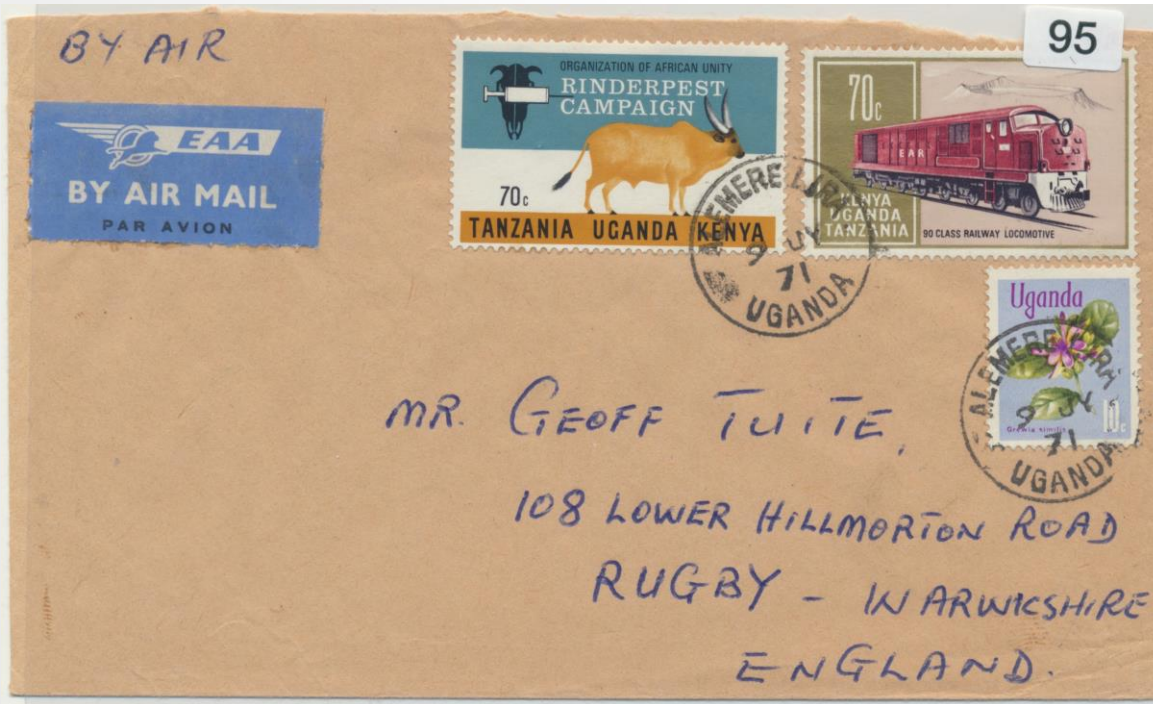 BY AIR
EAA
BY AIR MAIL
PAR AVION
ORGANIZATION OF AFRICAN UNITY
RINDERPEST
CAMPAIGN
70c
TANZANIA UGANDA KENYA
95
70c
EAR
KENYA
UGANDA
TANZANIA
90 CLASS RAILWAY LOCOMOTIVE
ALEMERE LIRA
9 JY
71
UGANDA
Uganda
Grewia similis
10c
ALEMERE LIRA
9 JY
71
UGANDA
MR. GEOFF TUITE,
108 LOWER HILLMORTON ROAD
RUGBY - WARWKSHIRE
ENGLAND.